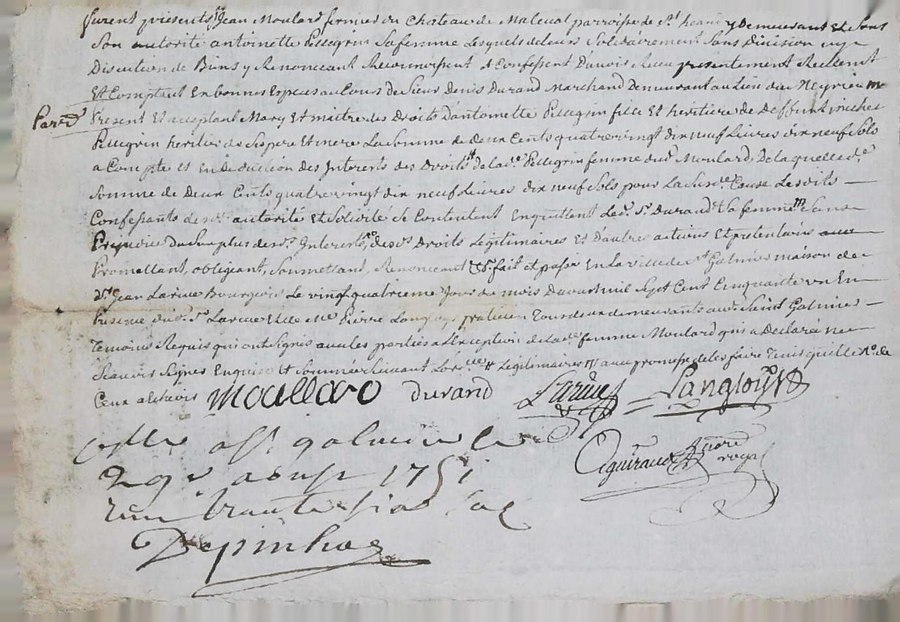 furent présents Sr Jean Moulard fermier du Chateau de Maleval parroisse de St heand y Demeurant Et Sous
Son autorité antoinette Pellegrin Safemme Lesquels deleurs Solidairement Sans Division ny
Discution de Biens y Renonceant Reconnoissent et Confessent Davoir Receu présentement Reelemt
Et Comptant En bonnes Especes au Cours de Sieur Denis Durand Marchand Demeurant au Lieu de
Present Et acceptant Mary Et maitre des Droits Dantoinette Pellegrin fille Et heritiere de Deffunt michel
Pellegrin heritier de Ses pere Et mere La Somme de deux Cents quatrevingt dix neuf Livres dix neuf Sols
a Compte et En deduction des Interests des Droits de lad. Pellegrin femme dud. Moulard Delaquelle de
Somme de Deux Cents quatrevingt dix neuf Livres dix neuf Sols pour La Susd. Cause Lesdits
Confessants de autorité Et Solidité Se Contentent Enquittent Led. Sr Durand Et Sa femme Sans
Prejudice Du Surplus desd. Interests, desd. Droits Légitimaires Et D'autres actions Et pretentions
Promettant, obligeant, Soumettant, Renonceant &a fait et passé En la ville de St Galmier maison de
Sr Jean Larüe Bourgeois Le vingt quatrieme Jour du mois Davoust mil Sept Cent Cinquante un En
Presence dud. Sr Larüe Et de Me Pierre Langloys praticien Tous deux demeurants aud. Saint Galmier
Temoins Requis qui ont Signés avec les parties a L'exception de lad. femme Moulard qui a Declaré ne
Scavoir Signer Enquise et Sommée Suivant Lord.ce Legitimaires
Ceux
Moullard durand Larüe Langloys
a St galmier le
aoust 1751
Depinhac
royal